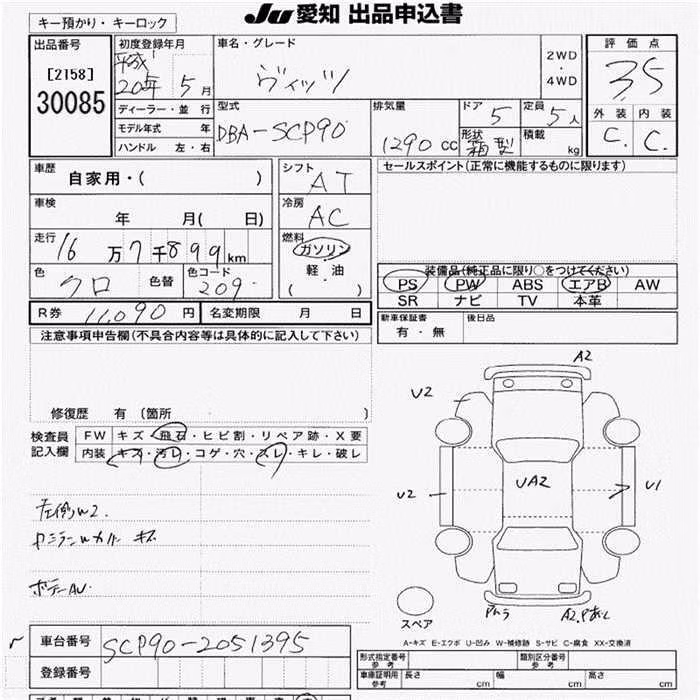 キー預かり・キーロック
JU 愛知 出品申込書
出品番号
[2158]
30085
初度登録年月
平成
20年 5月
車名・グレード
ヴィッツ
2WD
・
4WD
評価点
3.5
外装 内装
C. C.
ディーラー・並行
モデル年式 年
ハンドル 左・右
型式
DBA-SCP90
排気量
1290 cc
ドア 5
定員 5人
形状 箱型
積載 kg
車歴
自家用・( )
シフト
AT
セールスポイント(正常に機能するものに限ります)
車検
年 月( 日)
冷房
AC
走行
16万7千899km
燃料
ガソリン
軽・油
( )
色
クロ
色替
色コード
209
装備品(純正品に限り○をつけてください)
PS PW ABS エアB AW
SR ナビ TV 本革
R券 11,090 円
名変期限 月 日
新車保証書
有・無
後日品
注意事項申告欄(不具合内容等は具体的に記入して下さい)
修復歴 有 〔箇所 〕
検査員
記入欄
FW キズ・飛石・ヒビ割・リペア跡・X要
内装 キズ・汚レ・コゲ・穴・スレ・キレ・破レ
A2
U2
UA2
U2
U1
スペア
左側W2.
ボデーAU.
A-キズ E-エクボ U-凹み W-補修跡 S-サビ C-腐食 XX-交換済
車台番号
SCP90-2051395
登録番号
形式指定番号
参考
類別区分番号
参考
車庫証明用
参考
長さ cm 幅 cm 高さ cm